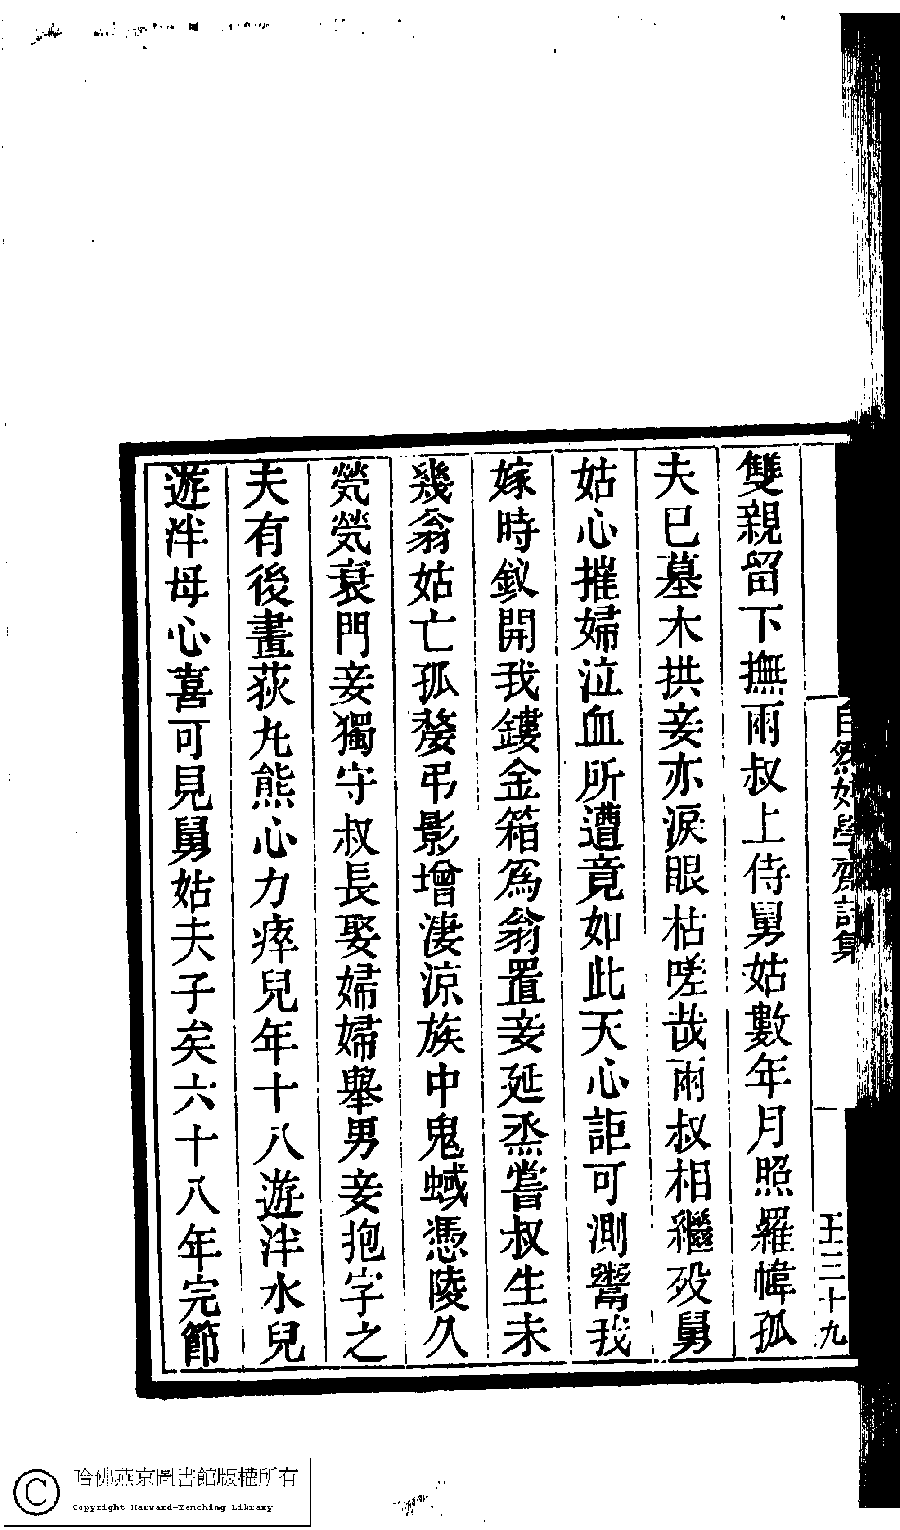 自然好學齋詩集
王三十九
雙親留下撫兩叔上侍舅姑數年月照羅幃孤
夫已墓木拱妾亦淚眼枯嗟哉兩叔相繼歿舅
姑心摧婦泣血所遭竟如此天心詎可測鬻我
嫁時釵開我鏤金箱爲翁置妾延烝嘗叔生未
幾翁姑亡孤嫠弔影增淒涼族中鬼蜮憑陵久
煢煢衰門妾獨守叔長娶婦婦舉男妾抱字之
夫有後畫荻丸熊心力瘁兒年十八遊泮水兒
遊泮母心喜可見舅姑夫子矣六十八年完節
哈佛燕京圖書館版權所有
Copyright Harvard-Yenching Library